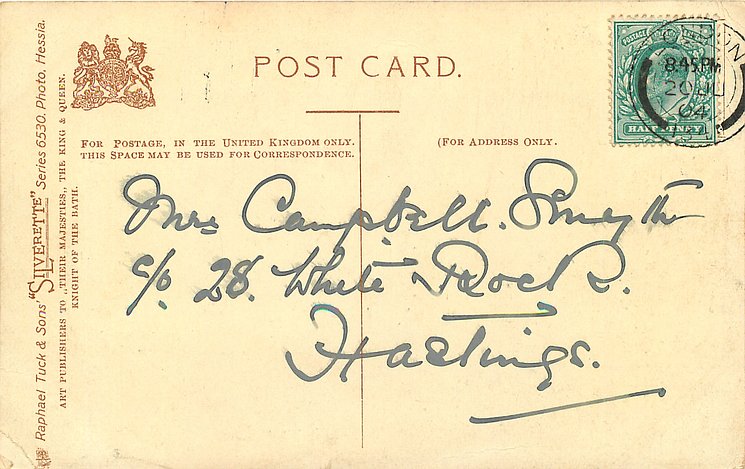 POST CARD.
FOR POSTAGE, IN THE UNITED KINGDOM ONLY.
THIS SPACE MAY BE USED FOR CORRESPONDENCE.
(FOR ADDRESS ONLY.
Mrs Campbell. Smythe
c/o 28. White Rock.
Hastings.
Raphael Tuck & Sons' "SILVERETTE" Series 6530. Photo, Hessia.
ART PUBLISHERS TO „THEIR MAJESTIES„ THE KING & QUEEN.
KNIGHT OF THE BATH.
POSTAGE
HALF PENNY
LONDON
8.45 PM
20 JU
04